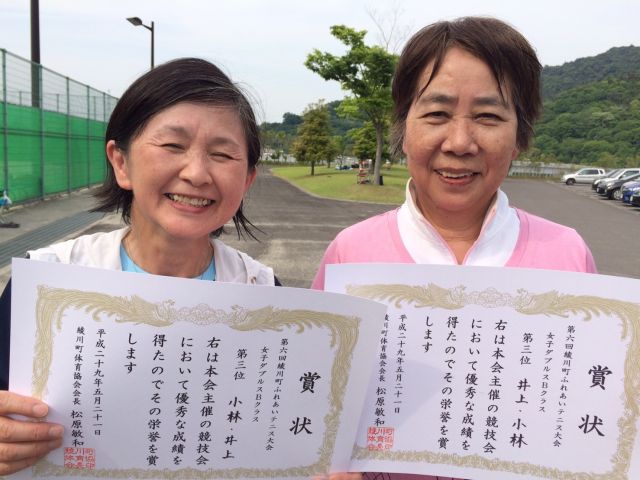 賞状
第六回綾川町ふれあいテニス大会
女子ダブルスBクラス
第三位 小林・井上
右は本会主催の競技会
において優秀な成績を
得たのでその栄誉を賞
します
平成二十九年五月二十一日
綾川町体育協会会長 松原敏和
賞状
第六回綾川町ふれあいテニス大会
女子ダブルスBクラス
第三位 井上・小林
右は本会主催の競技会
において優秀な成績を
得たのでその栄誉を賞
します
平成二十九年五月二十一日
綾川町体育協会会長 松原敏和